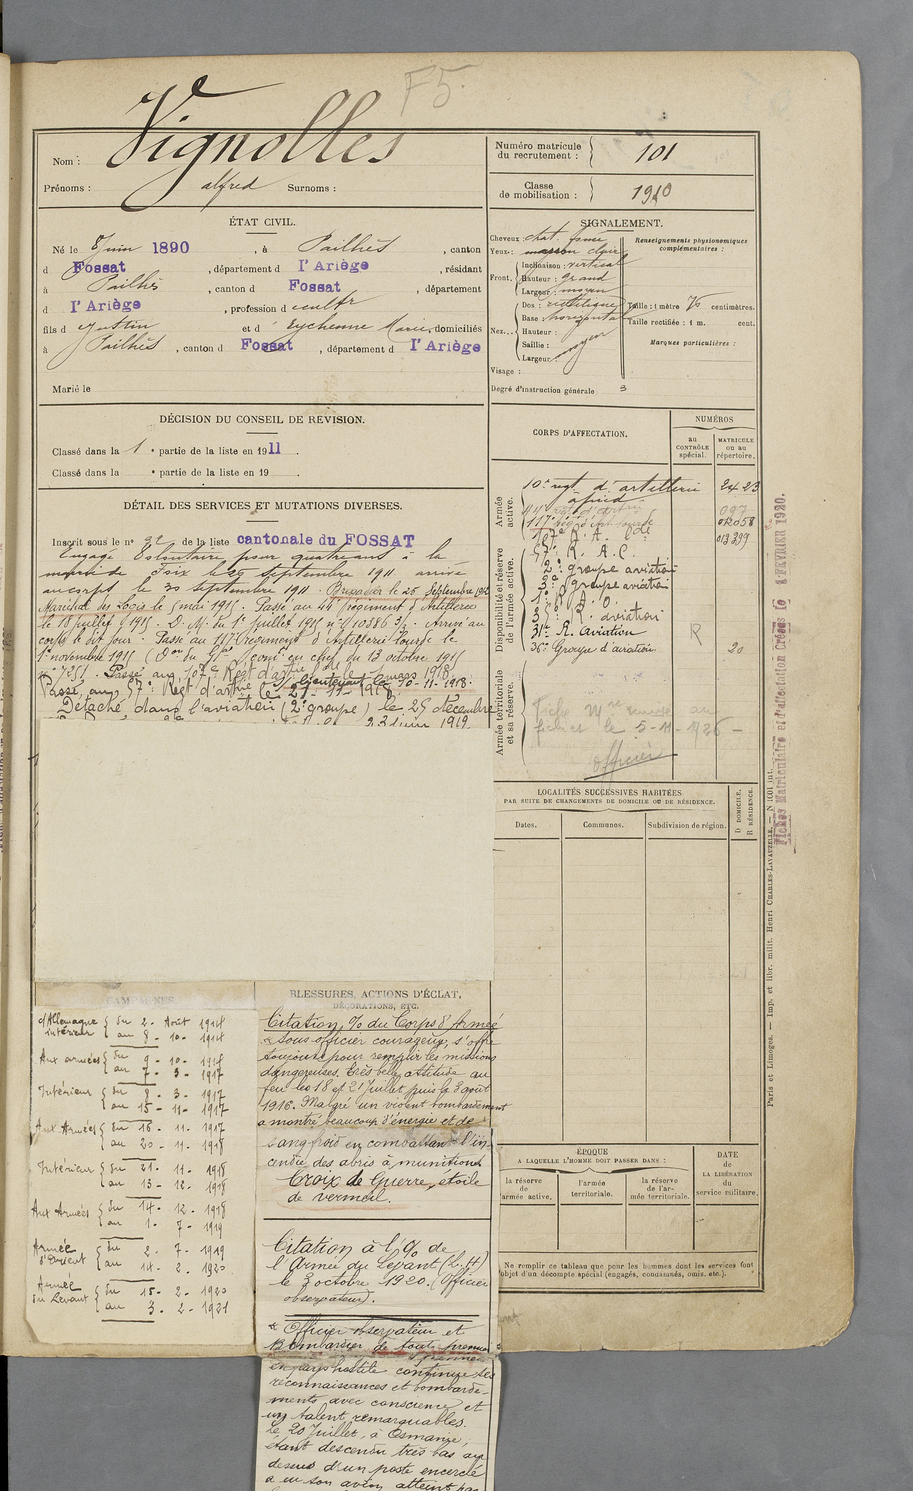 F5
Nom : Vignolles
Prénoms : alfred Surnoms :
Numéro matricule du recrutement : 101
Classe de mobilisation : 1910
ÉTAT CIVIL.
Né le 8 juin 1890, à Pailhès, canton
d Fossat, département d l'Ariège, résidant
à Pailhès, canton d Fossat, département
d l'Ariège, profession d cultr
fils d Justin et d Eychenne Marie, domiciliés
à Pailhès, canton d Fossat, département d l'Ariège
Marié le
SIGNALEMENT.
Cheveux : chat. foncé
Yeux : marron clair
Front. Inclinaison : vertical
Hauteur : grand
Largeur : moyen
Nez. Dos : rectiligne
Base : horizontale
Hauteur :
Saillie : moyen
Largeur
Visage :
Degré d'instruction générale 3
Renseignements physionomiques complémentaires :
Taille : 1 mètre 76 centimètres.
Taille rectifiée : 1 m. cent.
Marques particulières :
DÉCISION DU CONSEIL DE REVISION.
Classé dans la 1 e partie de la liste en 1911.
Classé dans la e partie de la liste en 19 .
DÉTAIL DES SERVICES ET MUTATIONS DIVERSES.
Inscrit sous le n° de la liste cantonale du FOSSAT
Engagé Volontaire pour quatre ans à la
mairie de Foix le septembre 1911. arrivé
au corps le 30 septembre 1911. Brigadier le 26 Septembre 1912
Maréchal des Logis le 5 mai 1915. Passé au 44e régiment d'Artillerie
le 18 juillet 1915. D. M. du 1er juillet 1915 n° 910586 3/. Arrivé au
corps le dit jour. Passé au 117e régiment d'Artillerie lourde le
1er novembre 1915 (Don du Gal comt en chef du 13 octobre 1915
Passé au 107e Régt d'artie lde le mars 1918
S/ lieutenant le 10-11-1918.
Passé au 57e Régt d'artie le 21-11-1918
Détaché dans l'aviation (2e groupe) le 25 décembre
22 juin 1919
CORPS D'AFFECTATION.
NUMÉROS
au CONTRÔLE spécial.
MATRICULE ou au répertoire.
Armée active.
Disponibilité et réserve de l'armée active.
Armée territoriale et sa réserve.
10e regt d'artillerie 2423
à pied
44e regt d'artrie 097
117e regt d'Art lourde 01058
107e A. A. 013399
57e R. A. C.
2e groupe aviation
3e groupe aviation
1er R. A. O.
R. aviation
31e R. Aviation R
36e Groupe d'aviation 20
Fiche Mle envoyée au
fichier le 5-11-1926 -
officier
LOCALITÉS SUCCESSIVES HABITÉES
PAR SUITE DE CHANGEMENTS DE DOMICILE OU DE RÉSIDENCE.
Dates.
Communes.
Subdivision de région.
D DOMICILE.
R RÉSIDENCE.
CAMPAGNES
c/Allemagne
intérieur du 2 - Août 1914
au 8 - 10 - 1914
Aux armées du 9 - 10 - 1914
au 7 - 3 - 1917
Intérieur du 8 - 3 - 1917
au 15 - 11 - 1917
Aux Armées du 16 - 11 - 1917
au 20 - 11 - 1918
Intérieur du 21 - 11 - 1918
au 13 - 12 - 1918
Aux Armées du 14 - 12 - 1918
au 1 - 7 - 1919
Armée
d'Orient du 2 - 7 - 1919
au 14 - 2 - 1920
Armée
du Levant du 15 - 2 - 1920
au 3 - 2 - 1921
BLESSURES, ACTIONS D'ÉCLAT,
DÉCORATIONS, ETC.
Citation % du Corps d'Armée
« sous officier courageux, s'offre
toujours pour remplir les missions
dangereuses. très belle attitude au
feu les 18 et 21 Juillet puis le 3 août
1916. Malgré un violent bombardement
a montré beaucoup d'énergie et de
sang froid en combattant l'in-
cendie des abris à munitions
Croix de Guerre, étoile
de vermeil.
Citation à l'% de
l'Armée du Levant (L. H)
le 3 octobre 1920. (officier
observateur).
« Officier observateur et
Bombardier de toute première
en pays hostile continue ses
reconnaissances et bombarde-
ments avec conscience et
un talent remarquables.
Le 20 Juillet, à Osmanié,
étant descendu très bas au
dessus d'un poste encerclé
a eu son avion atteint par
ÉPOQUE
A LAQUELLE L'HOMME DOIT PASSER DANS :
la réserve de l'armée active.
l'armée territoriale.
la réserve de l'armée territoriale.
DATE de LA LIBÉRATION du service militaire.
Ne remplir ce tableau que pour les hommes dont les services font
l'objet d'un décompte spécial (engagés, condamnés, omis, etc.).
Fiches Matriculaire et d'affectation Créées le 4 FÉVRIER 1920.
Paris et Limoges. — Imp. et libr. milit. Henri CHARLES-LAVAUZELLE.